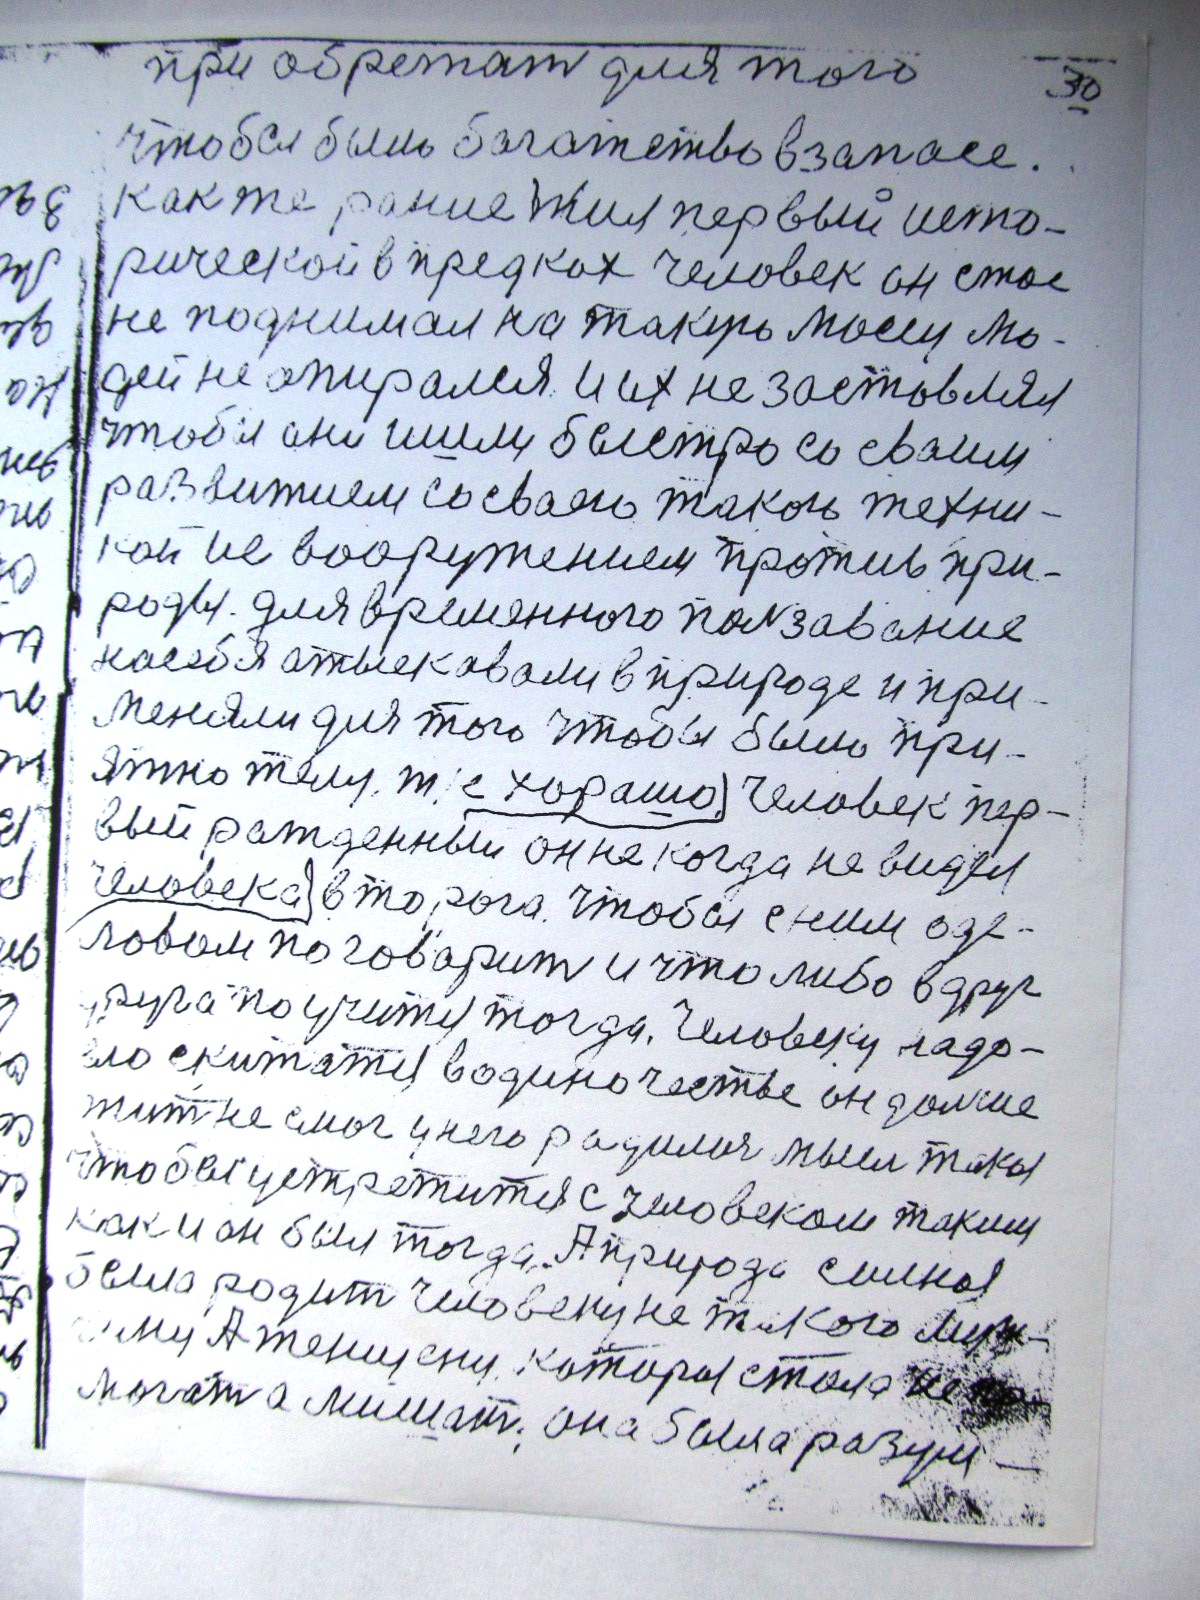 30
при обретат для того
чтобы было богатетво взапасе.
как же ранше жил первый исто-
рической в предках человек он стос
не поднимал на такую массу лю-
дей не опирался и их не заставлял
чтобы они шли быстро со сваим
развитием со сваею такою техни-
кой ие вооружением против при-
роды. для временного ползавание
насебя отыскавали в природе и при-
меняли для того чтобы было при-
ятно телу, т.е хорашо) Человек пер-
вый рожденный он не когда не видел
человека) второга. чтобы с ним оде-
ловом поговарит и что либо в друг
друга поучится тогда. Человеку надо-
ело скитатя водиночестве он долше
жит не смог унего радилия мысл такы
чтобы устретится с человеком таким
как и он был тогда. А природа силная
была родит человеку не такого муж-
чину А женщену. которы стала не по-
могат а мишат. она была разум-